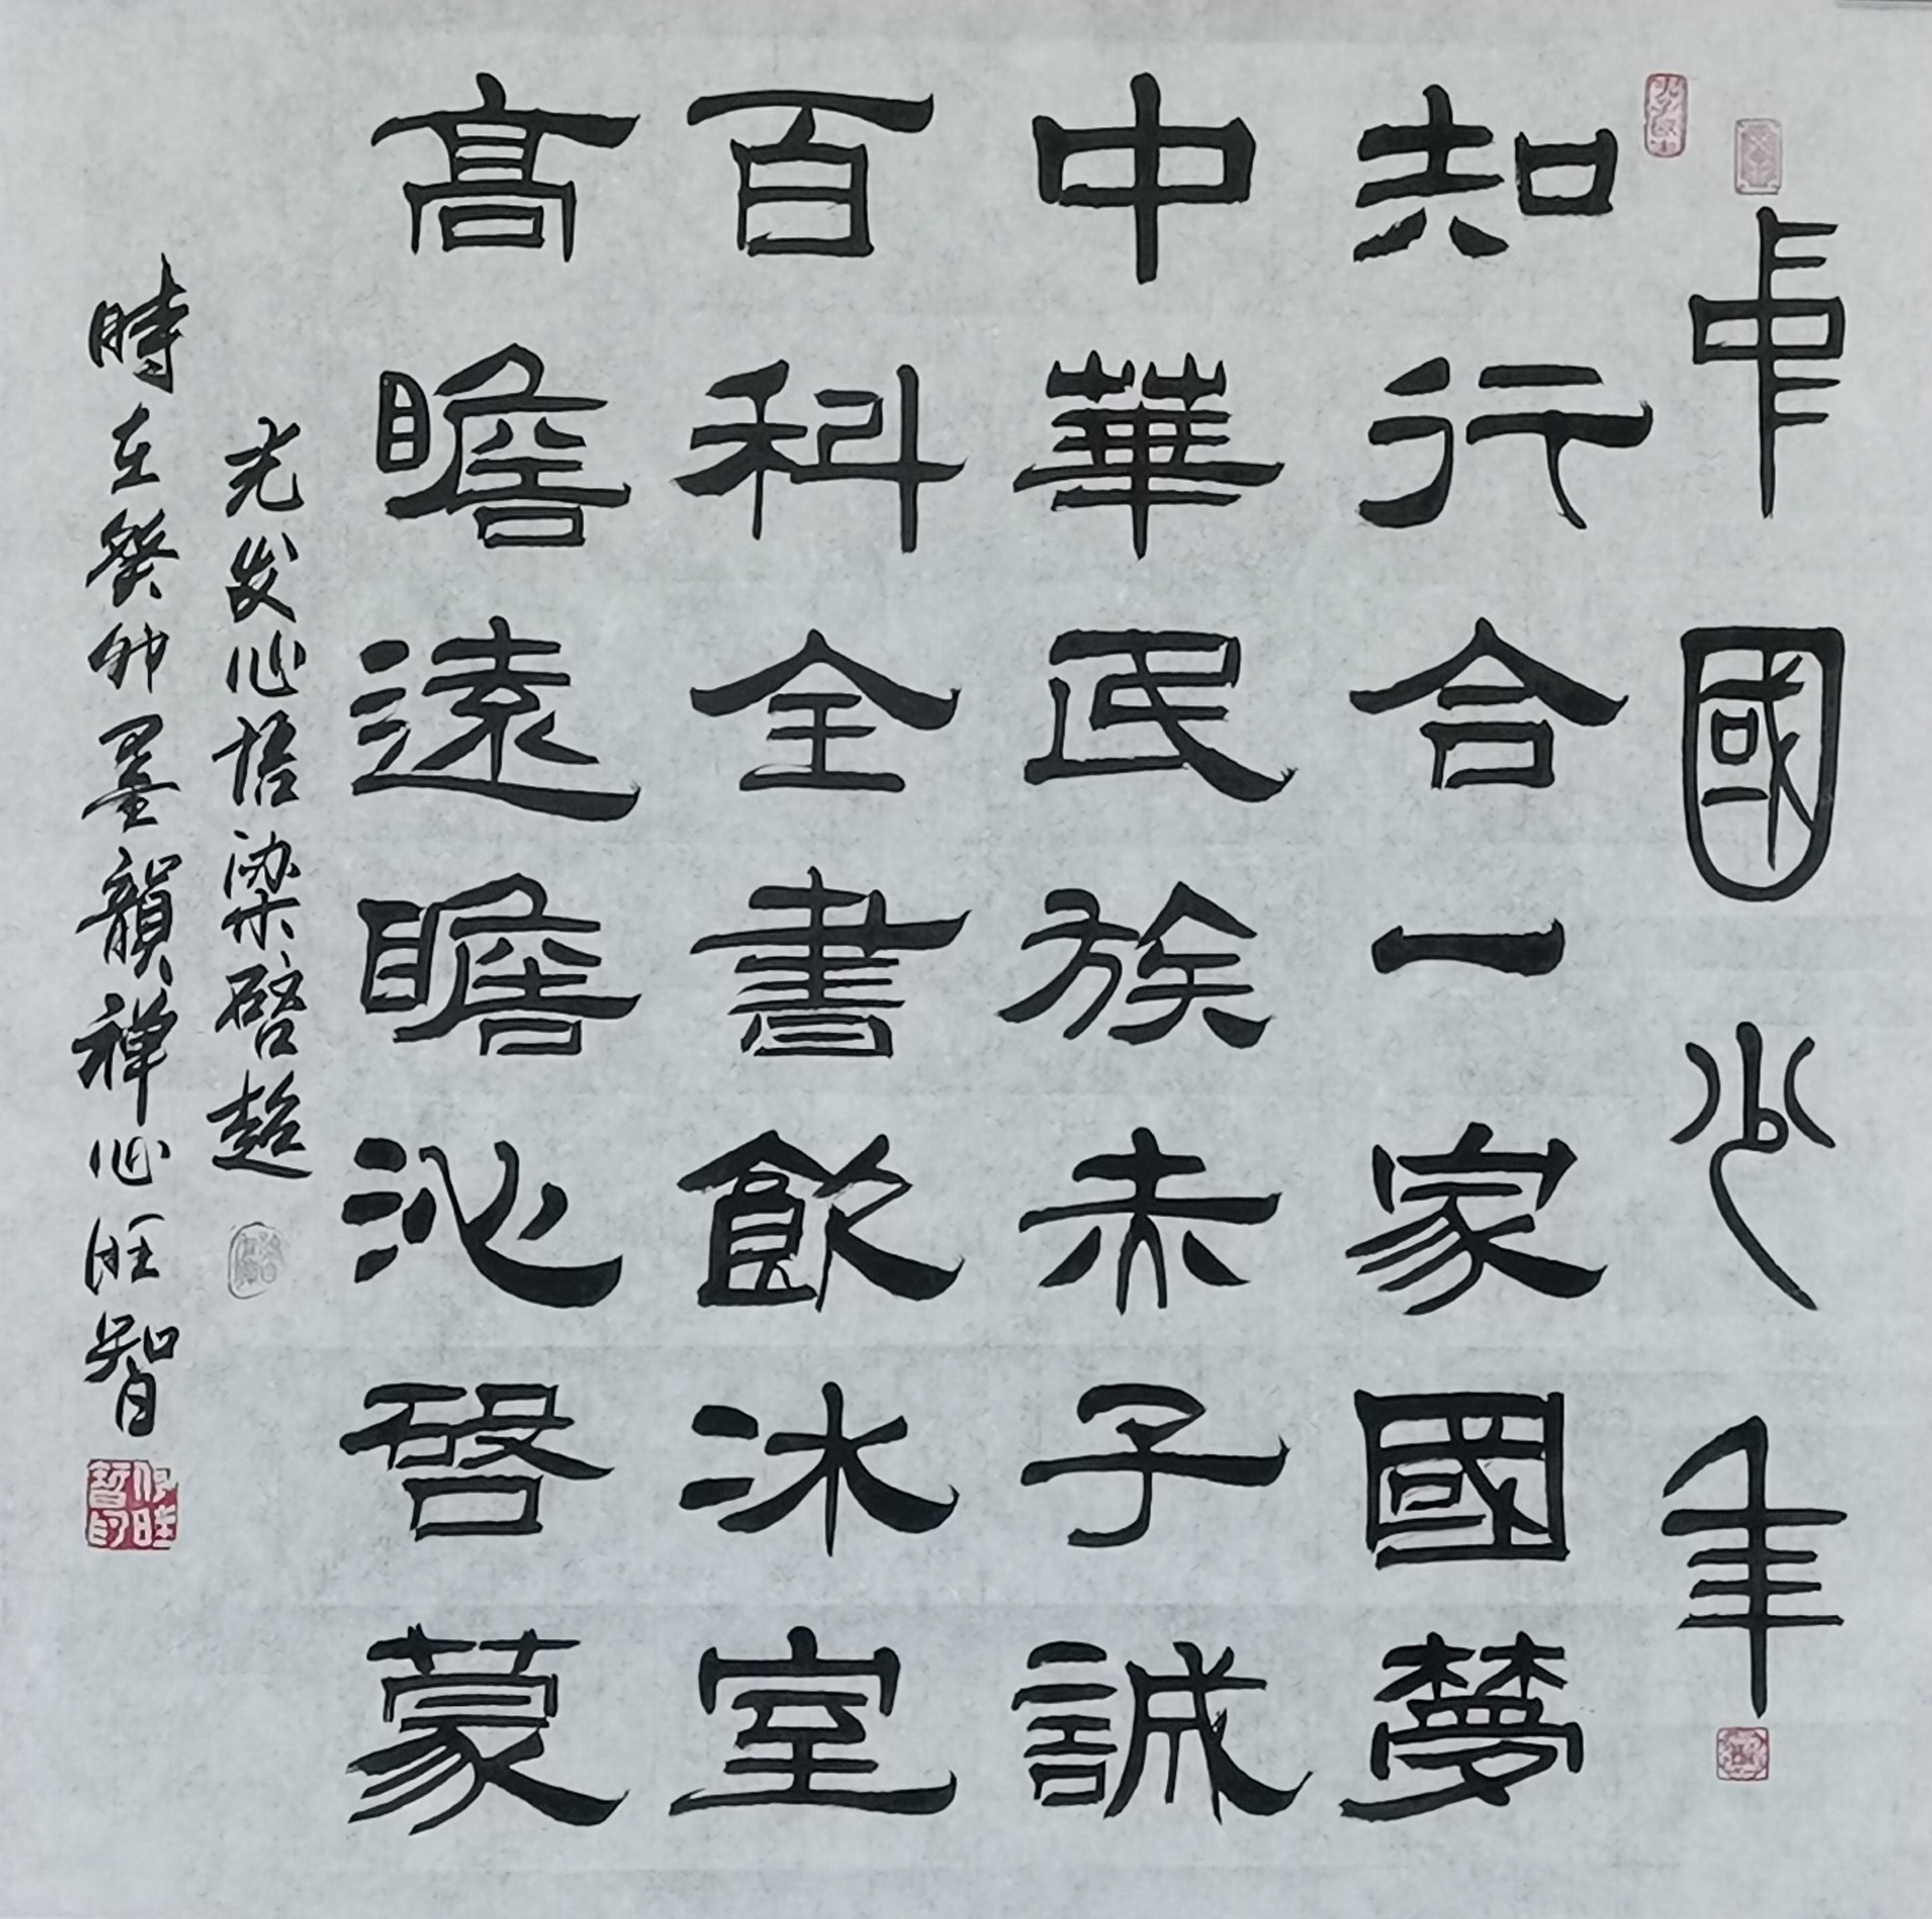 中國少年
知行合一家國夢
中華民族赤子誠
百科全書飲冰室
高瞻遠瞻沁啓蒙
光发心悟梁啓超
時在癸卯墨韻禅心旺智